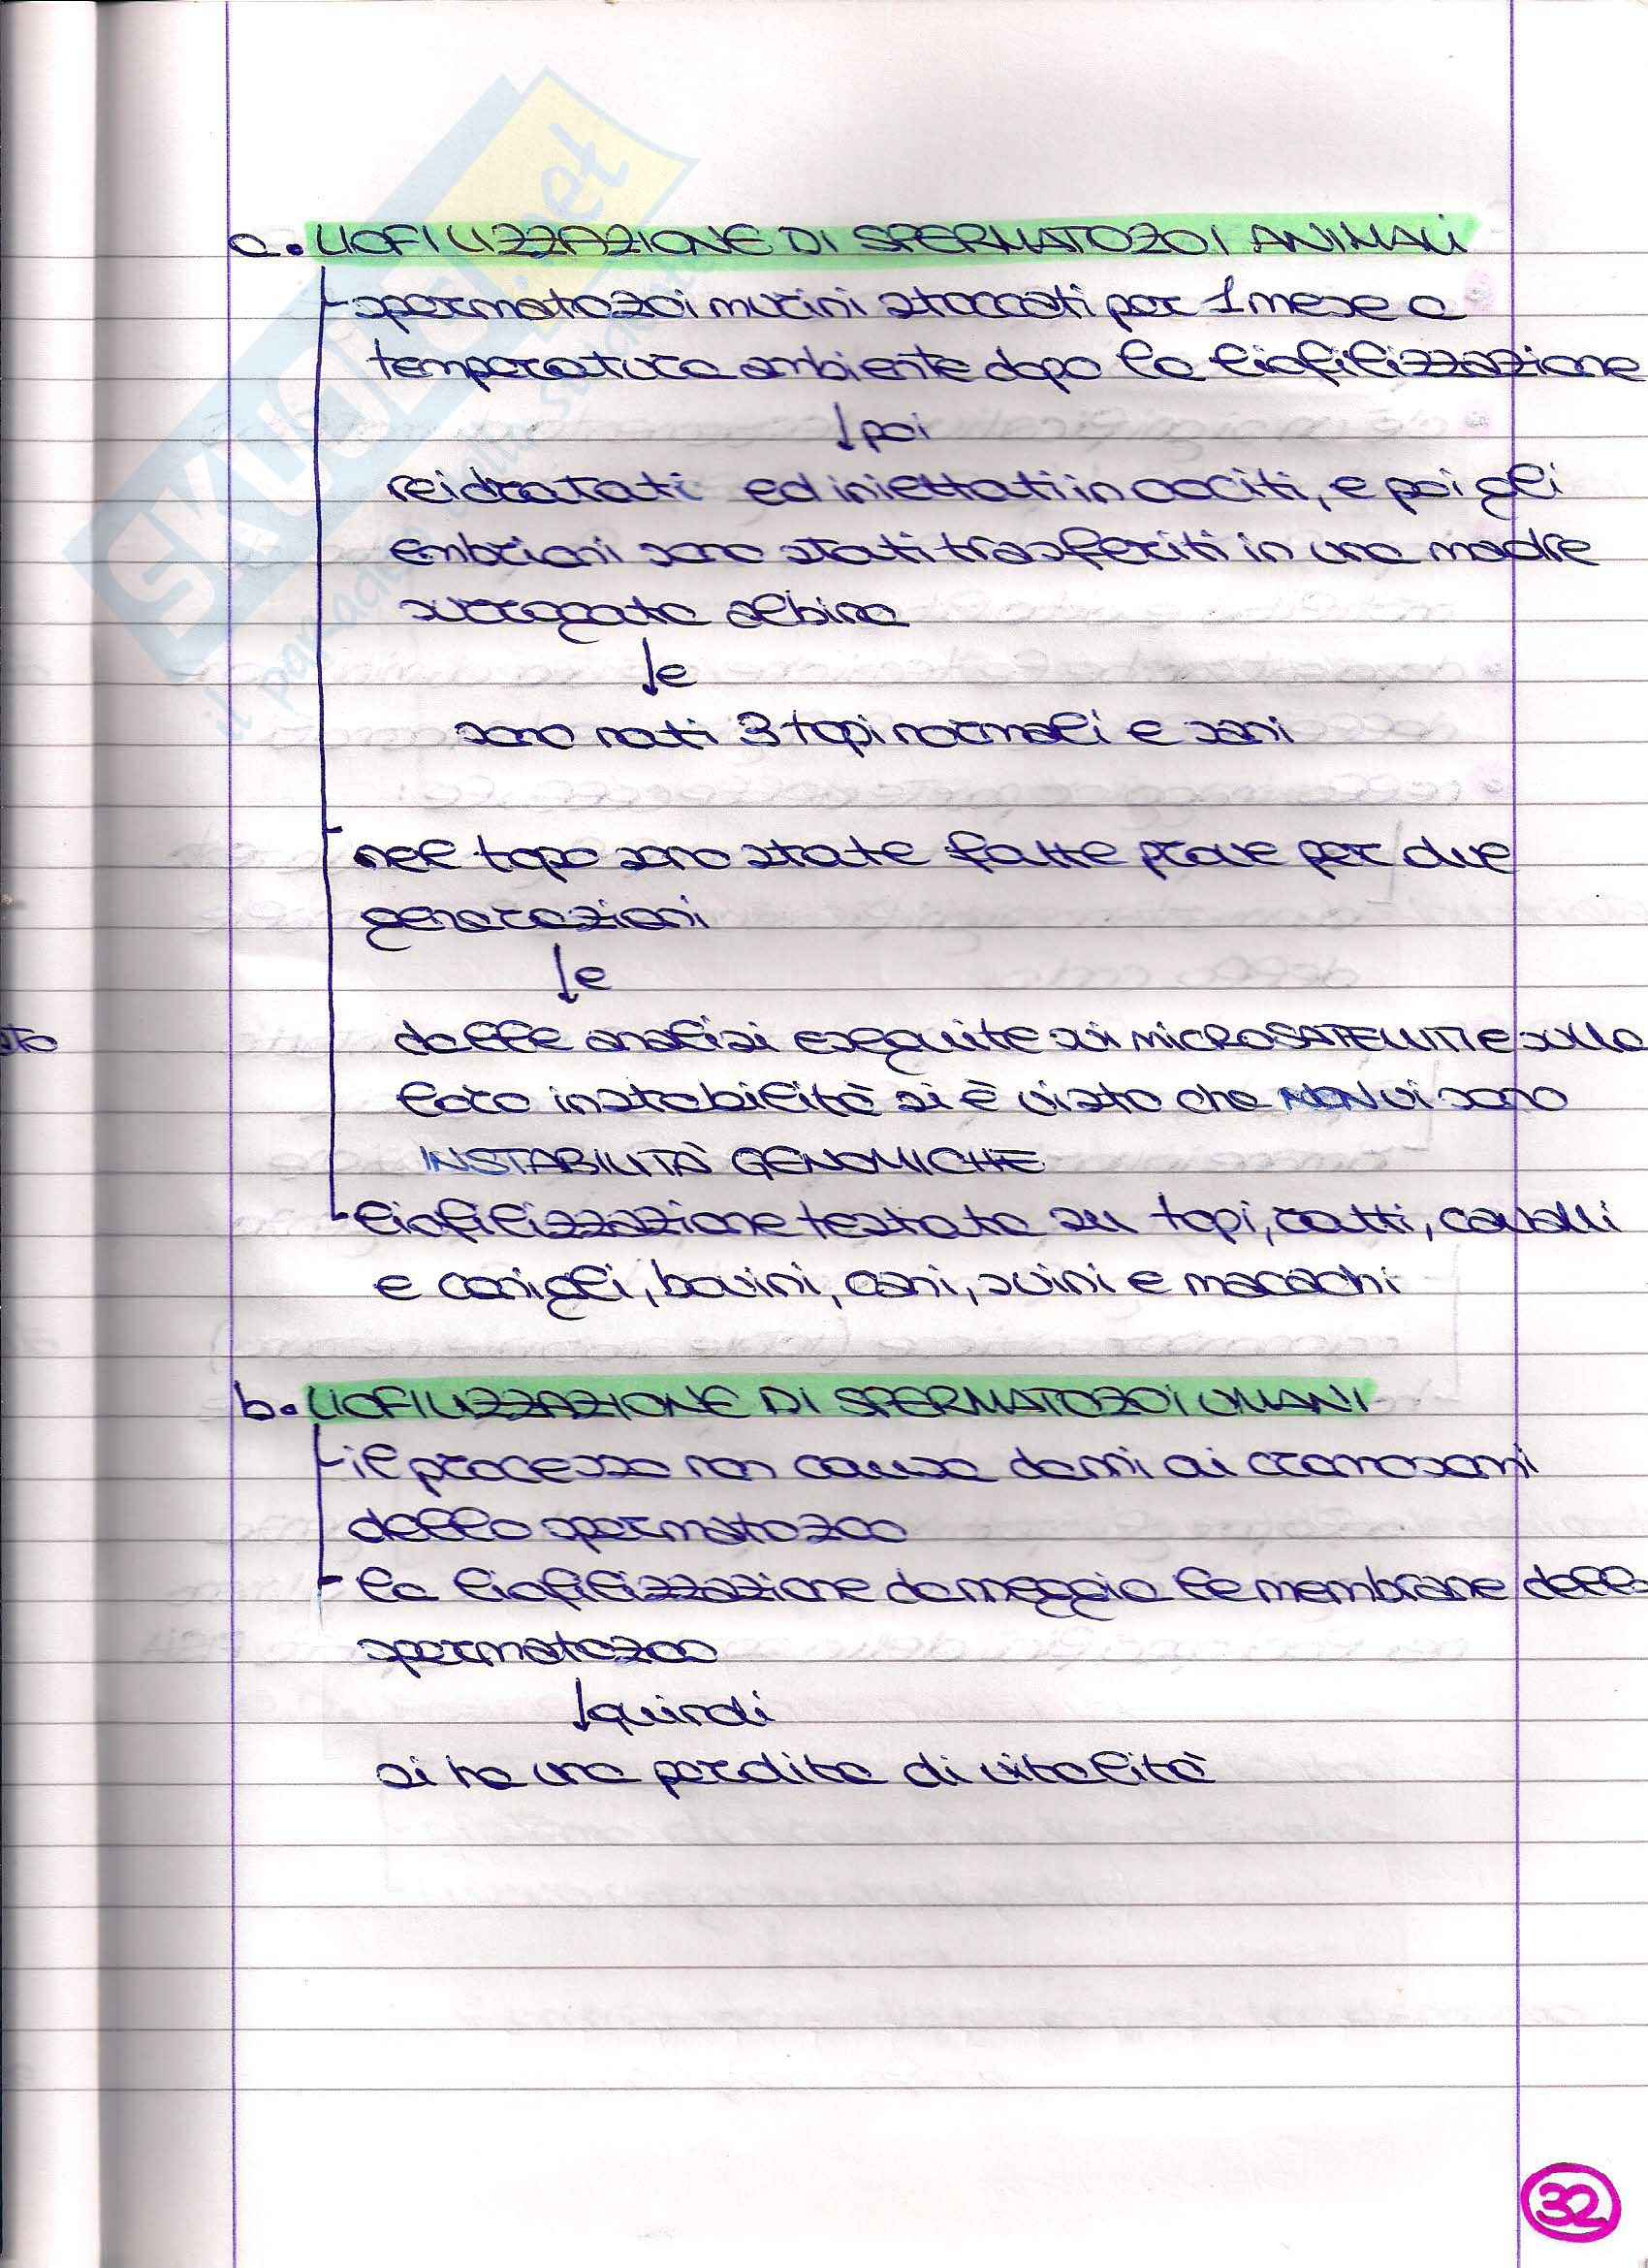 a. LIOFILIZZAZIONE DI SPERMATOZOI ANIMALI
- spermatozoi murini stoccati per 1 mese a
temperatura ambiente dopo la liofilizzazione
↓ poi
reidratati ed iniettati in oociti, e poi gli
embrioni sono stati trasferiti in una madre
surrogata albina
↓ e
sono nati 3 topi normali e sani
- nel topo sono state fatte prove per due
generazioni
↓ e
dalle analisi eseguite sui MICROSATELLITI e sulla
loro instabilità si è visto che NON vi sono
INSTABILITÀ GENOMICHE
- liofilizzazione testata su topi, ratti, cavalli
e conigli, bovini, cani, suini e macachi
b. LIOFILIZZAZIONE DI SPERMATOZOI UMANI
- il processo non causa danni ai cromosomi
dello spermatozoo
- la liofilizzazione dameggia le membrane dello
spermatozoo
↓ quindi
si ha una perdita di vitalità
32
SKUOLA.net